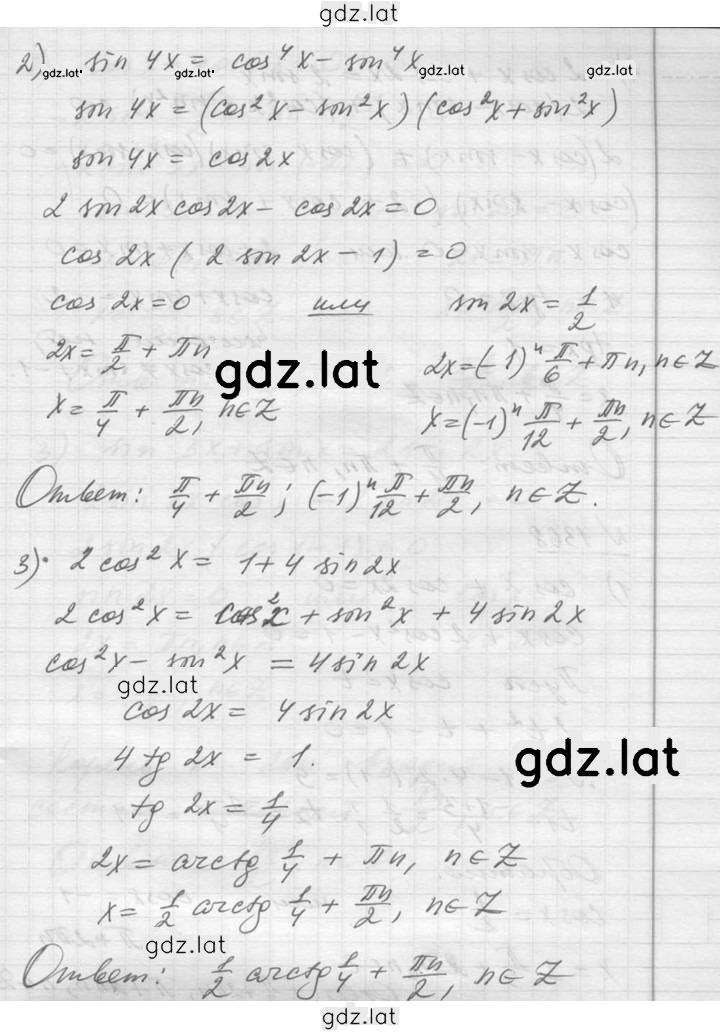 gdz.lat
2) sin 4x = cos⁴x − sin⁴x
gdz.lat gdz.lat gdz.lat gdz.lat
sin 4x = (cos²x − sin²x)(cos²x + sin²x)
sin 4x = cos 2x
2 sin 2x cos 2x − cos 2x = 0
cos 2x (2 sin 2x − 1) = 0
cos 2x = 0 или sin 2x = 1/2
2x = π/2 + πn 2x = (−1)ⁿ π/6 + πn, n∈Z
gdz.lat
x = π/4 + πn/2, n∈Z x = (−1)ⁿ π/12 + πn/2, n∈Z
Ответ: π/4 + πn/2; (−1)ⁿ π/12 + πn/2, n∈Z.
3) 2 cos²x = 1 + 4 sin 2x
2 cos²x = cos²x + sin²x + 4 sin 2x
cos²x − sin²x = 4 sin 2x
gdz.lat
cos 2x = 4 sin 2x
4 tg 2x = 1.
gdz.lat
tg 2x = 1/4
2x = arctg 1/4 + πn, n∈Z
x = 1/2 arctg 1/4 + πn/2, n∈Z
gdz.lat
Ответ: 1/2 arctg 1/4 + πn/2, n∈Z
gdz.lat